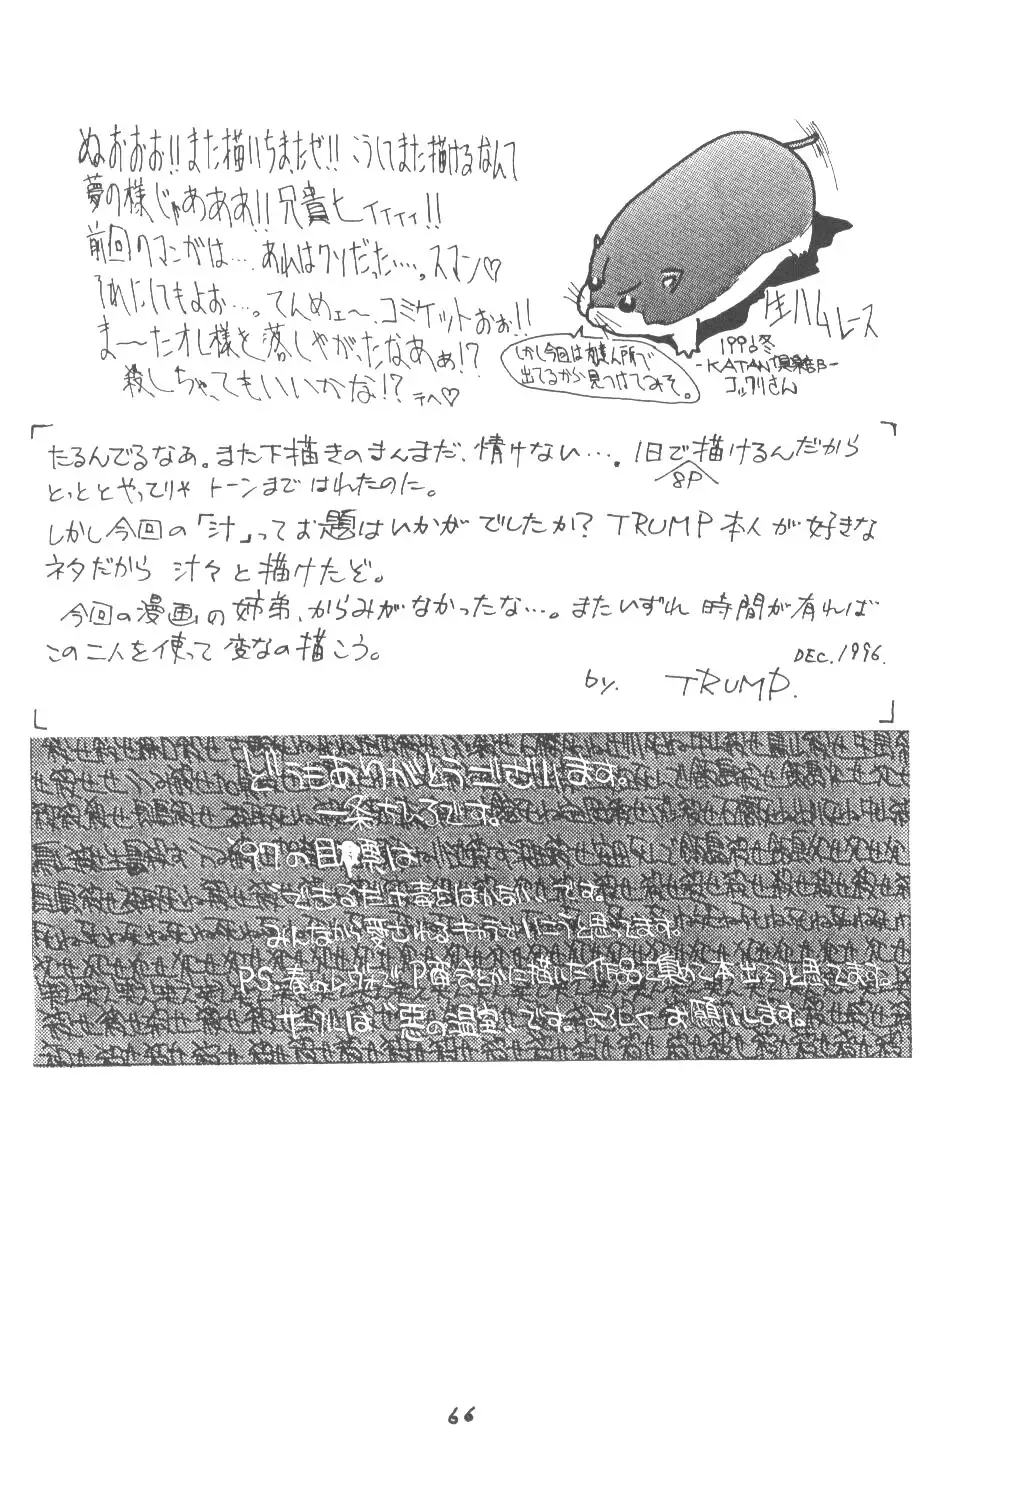 ぬおおお!!また描いちまたぜ!!こうしてまた描けるなんて
夢の様じゃあああ!!兄貴ヒィィィィ!!
前回のマンガは…あれはクソだった…。スマン♡
それにしてもよお…。てんめェ〜、コミケットおぉ!!
ま〜たオレ様を落しやがったなあぁ!?
殺しちゃってもいいかな!?テヘ♡
しかし今回は 所で
出てるから見つけてみそ。
生ハムレース
1996冬
-KATAN倶楽部-
コックリさん
たるんでるなぁ。また下描きのまんまだ、情けない…. 1日で描けるんだから
8P
とっととやってりゃ トーンまで はれたのに。
しかし今回の「汁」ってお題はいかがでしたか? TRUMP本人が好きな
ネタだから 汁々と描けたぞ。
今回の漫画の姉弟、からみがなかったな…。またいずれ 時間が有れば
この二人を使って 変なの描こう。
DEC.1996.
by. TRUMP.
どうもありがとうございます。
一条 ひろです。
'97の目標は
“できるだけ毒をはかない”です。
みんなから愛されるキャラでいこうと思ってます。
P.S.春のレヴォで P 描いた作品集めて本出そうと思ってます。
サークルは“悪の温室”です。よろしくお願いします。
66